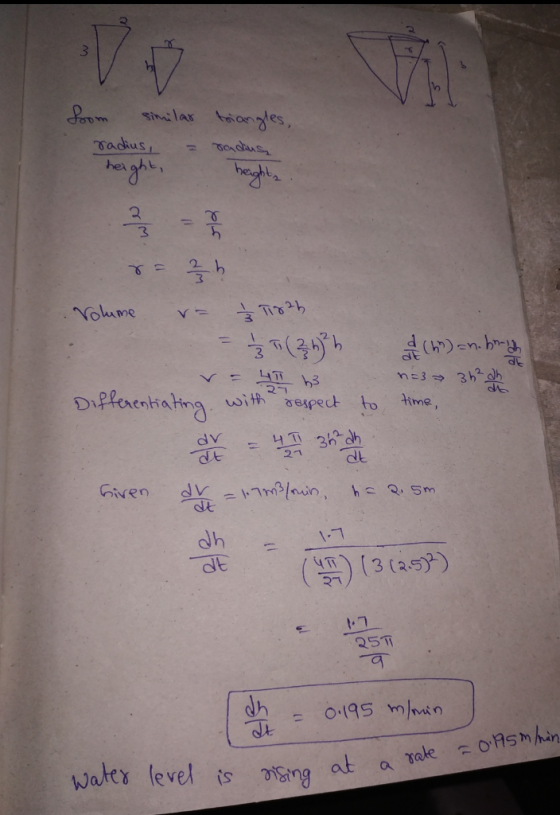 2
3
r
h
2
r
h
from similar triangles,
radius₁/height₁ = radius₂/height₂
2/3 = r/h
r = 2/3 h
Volume v = 1/3 πr²h
= 1/3 π(2/3 h)²h
v = 4π/27 h3
d/dt (hⁿ) = n. hⁿ⁻¹ dh/dt
n=3 ⇒ 3h² dh/dt
Differentiating with respect to time,
dv/dt = 4π/27 3h² dh/dt
Given dv/dt = 1.7m³/min, h = 2.5m
dh/dt = 1.7/((4π/27)(3(2.5)²))
= 1.7/(25π/9)
dh/dt = 0.195 m/min
Water level is rising at a rate = 0.195m/min